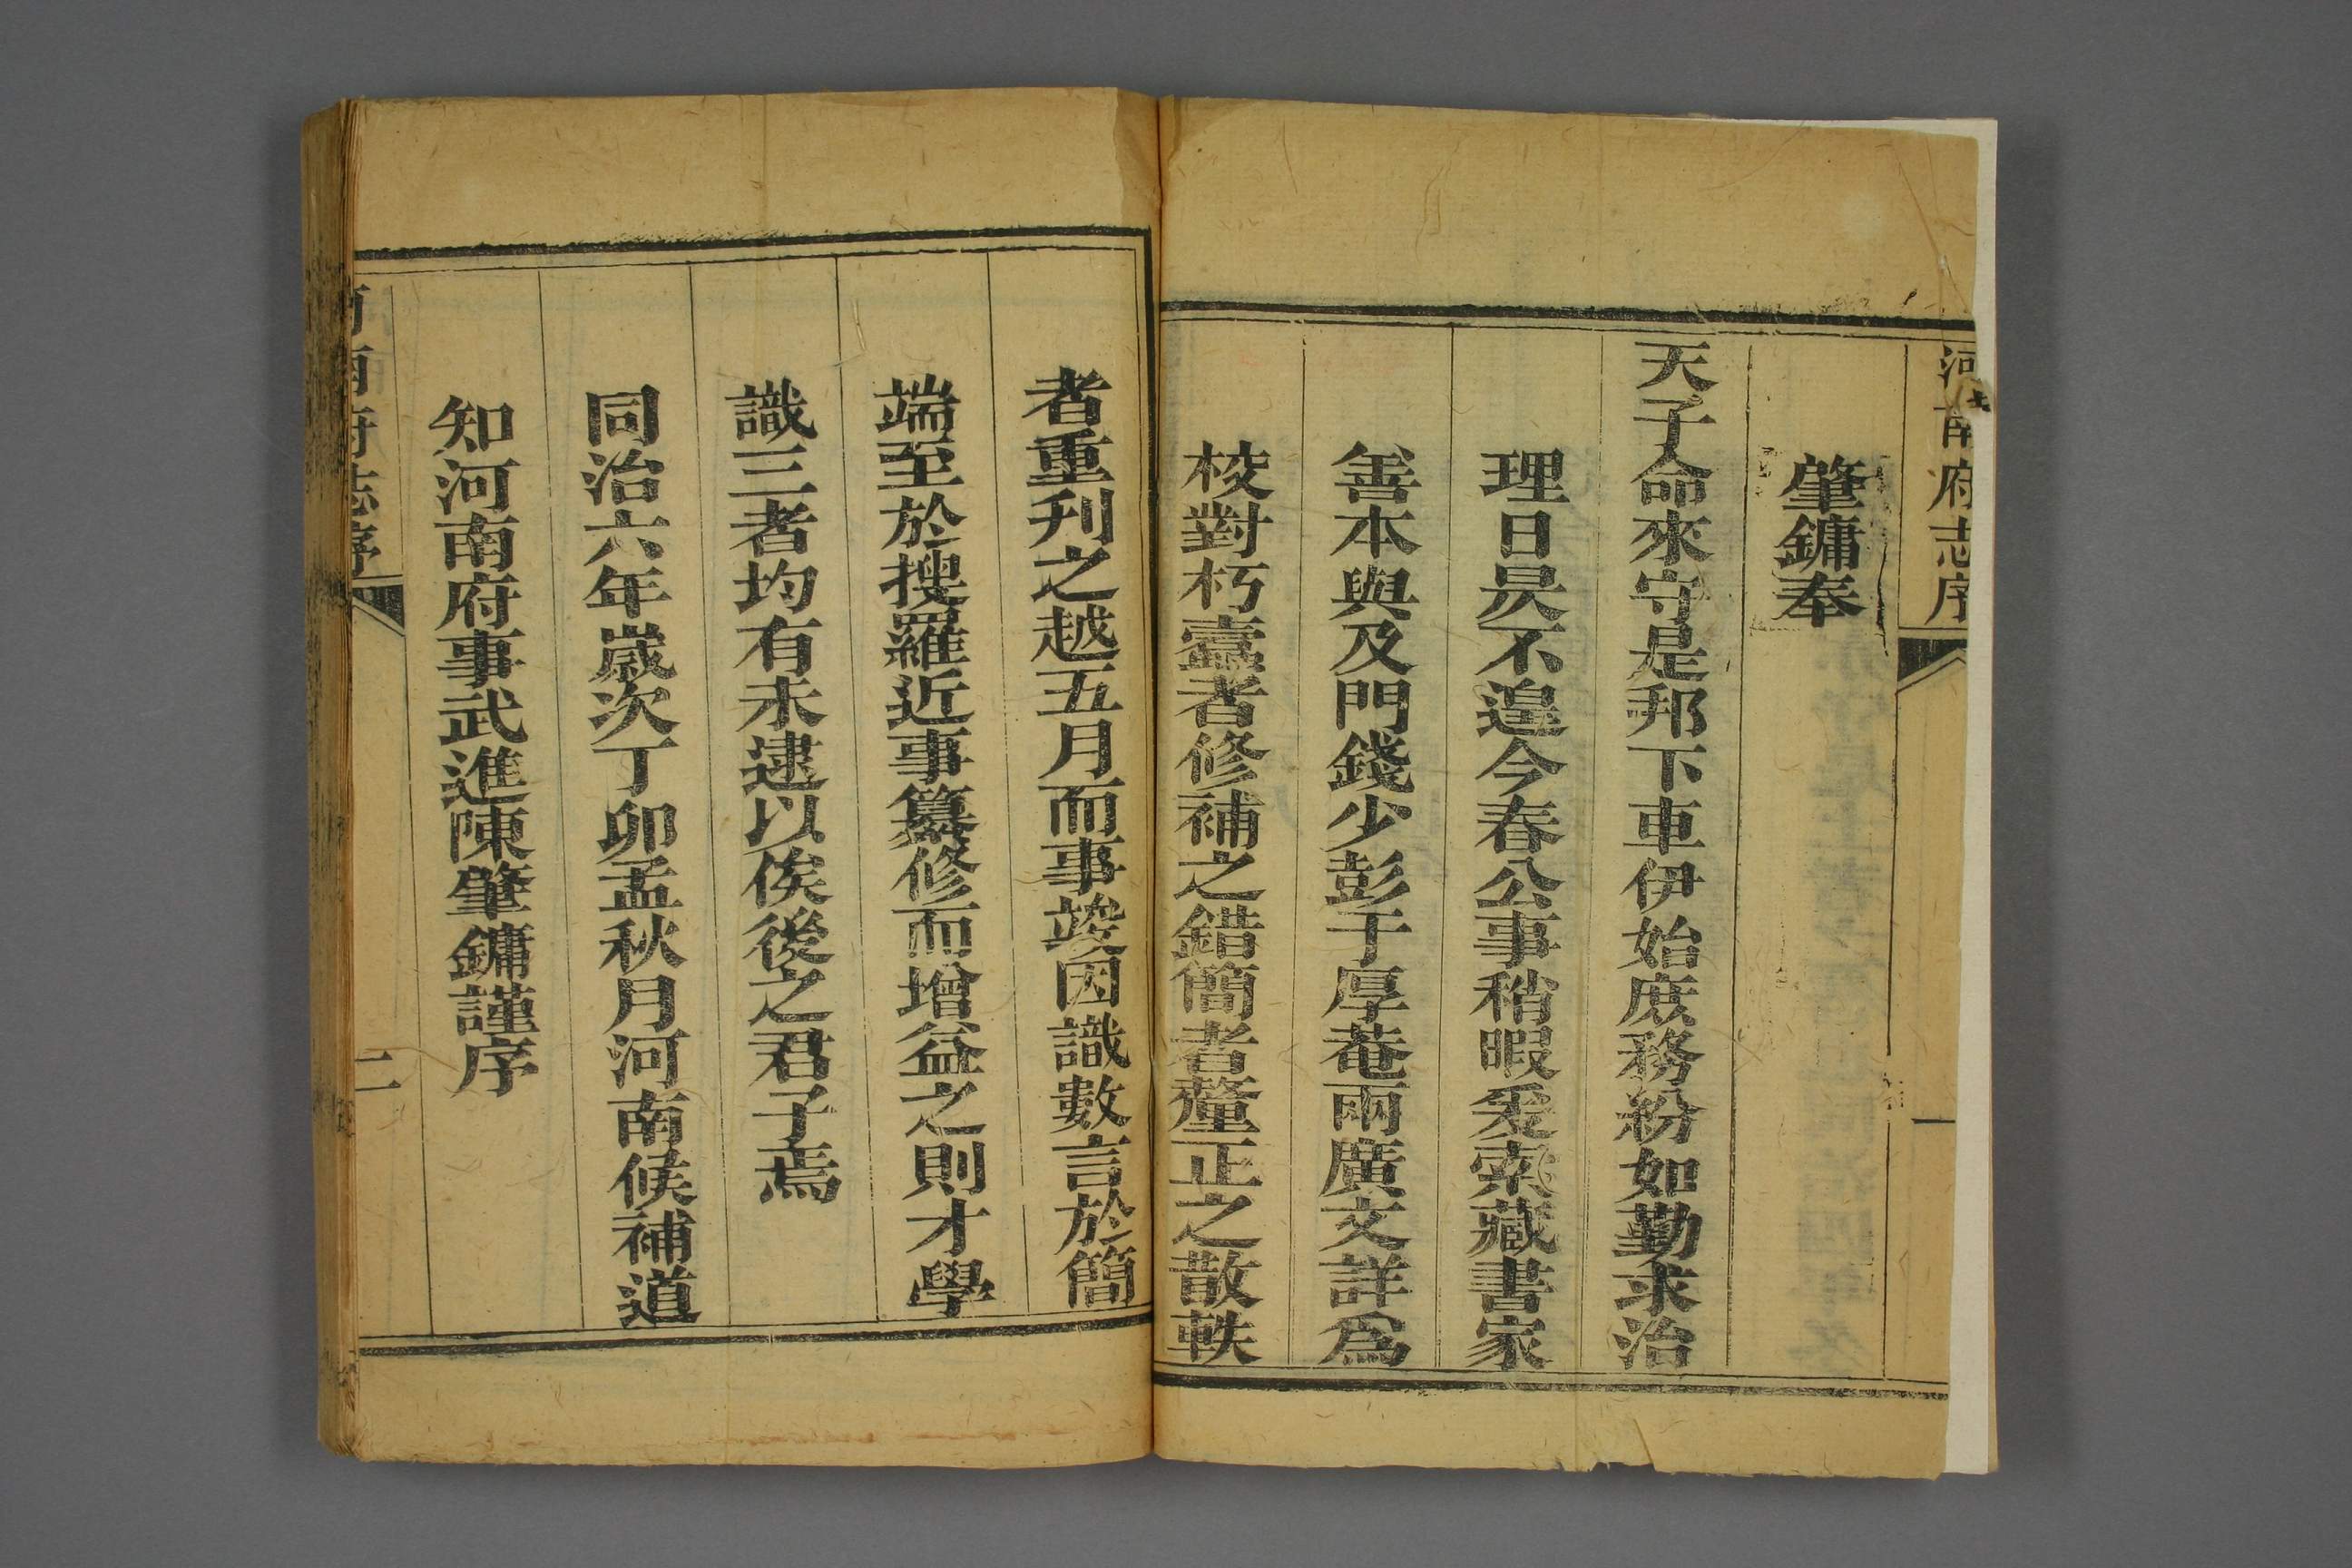 河南府志序
一
肇鏞奉
天子命來守是邦下車伊始庶務紛如勤求治
理日昃不遑今春公事稍暇爰索藏書家
善本與及門錢少彭于厚菴兩廣文詳為
校對朽蠹者修補之錯簡者釐正之散軼
者重刋之越五月而事竣因識數言於簡
端至於搜羅近事纂修而增益之則才學
識三者均有未逮以俟後之君子焉
同治六年歲次丁卯孟秋月河南候補道
知河南府事武進陳肇鏞謹序
河南府志序
二